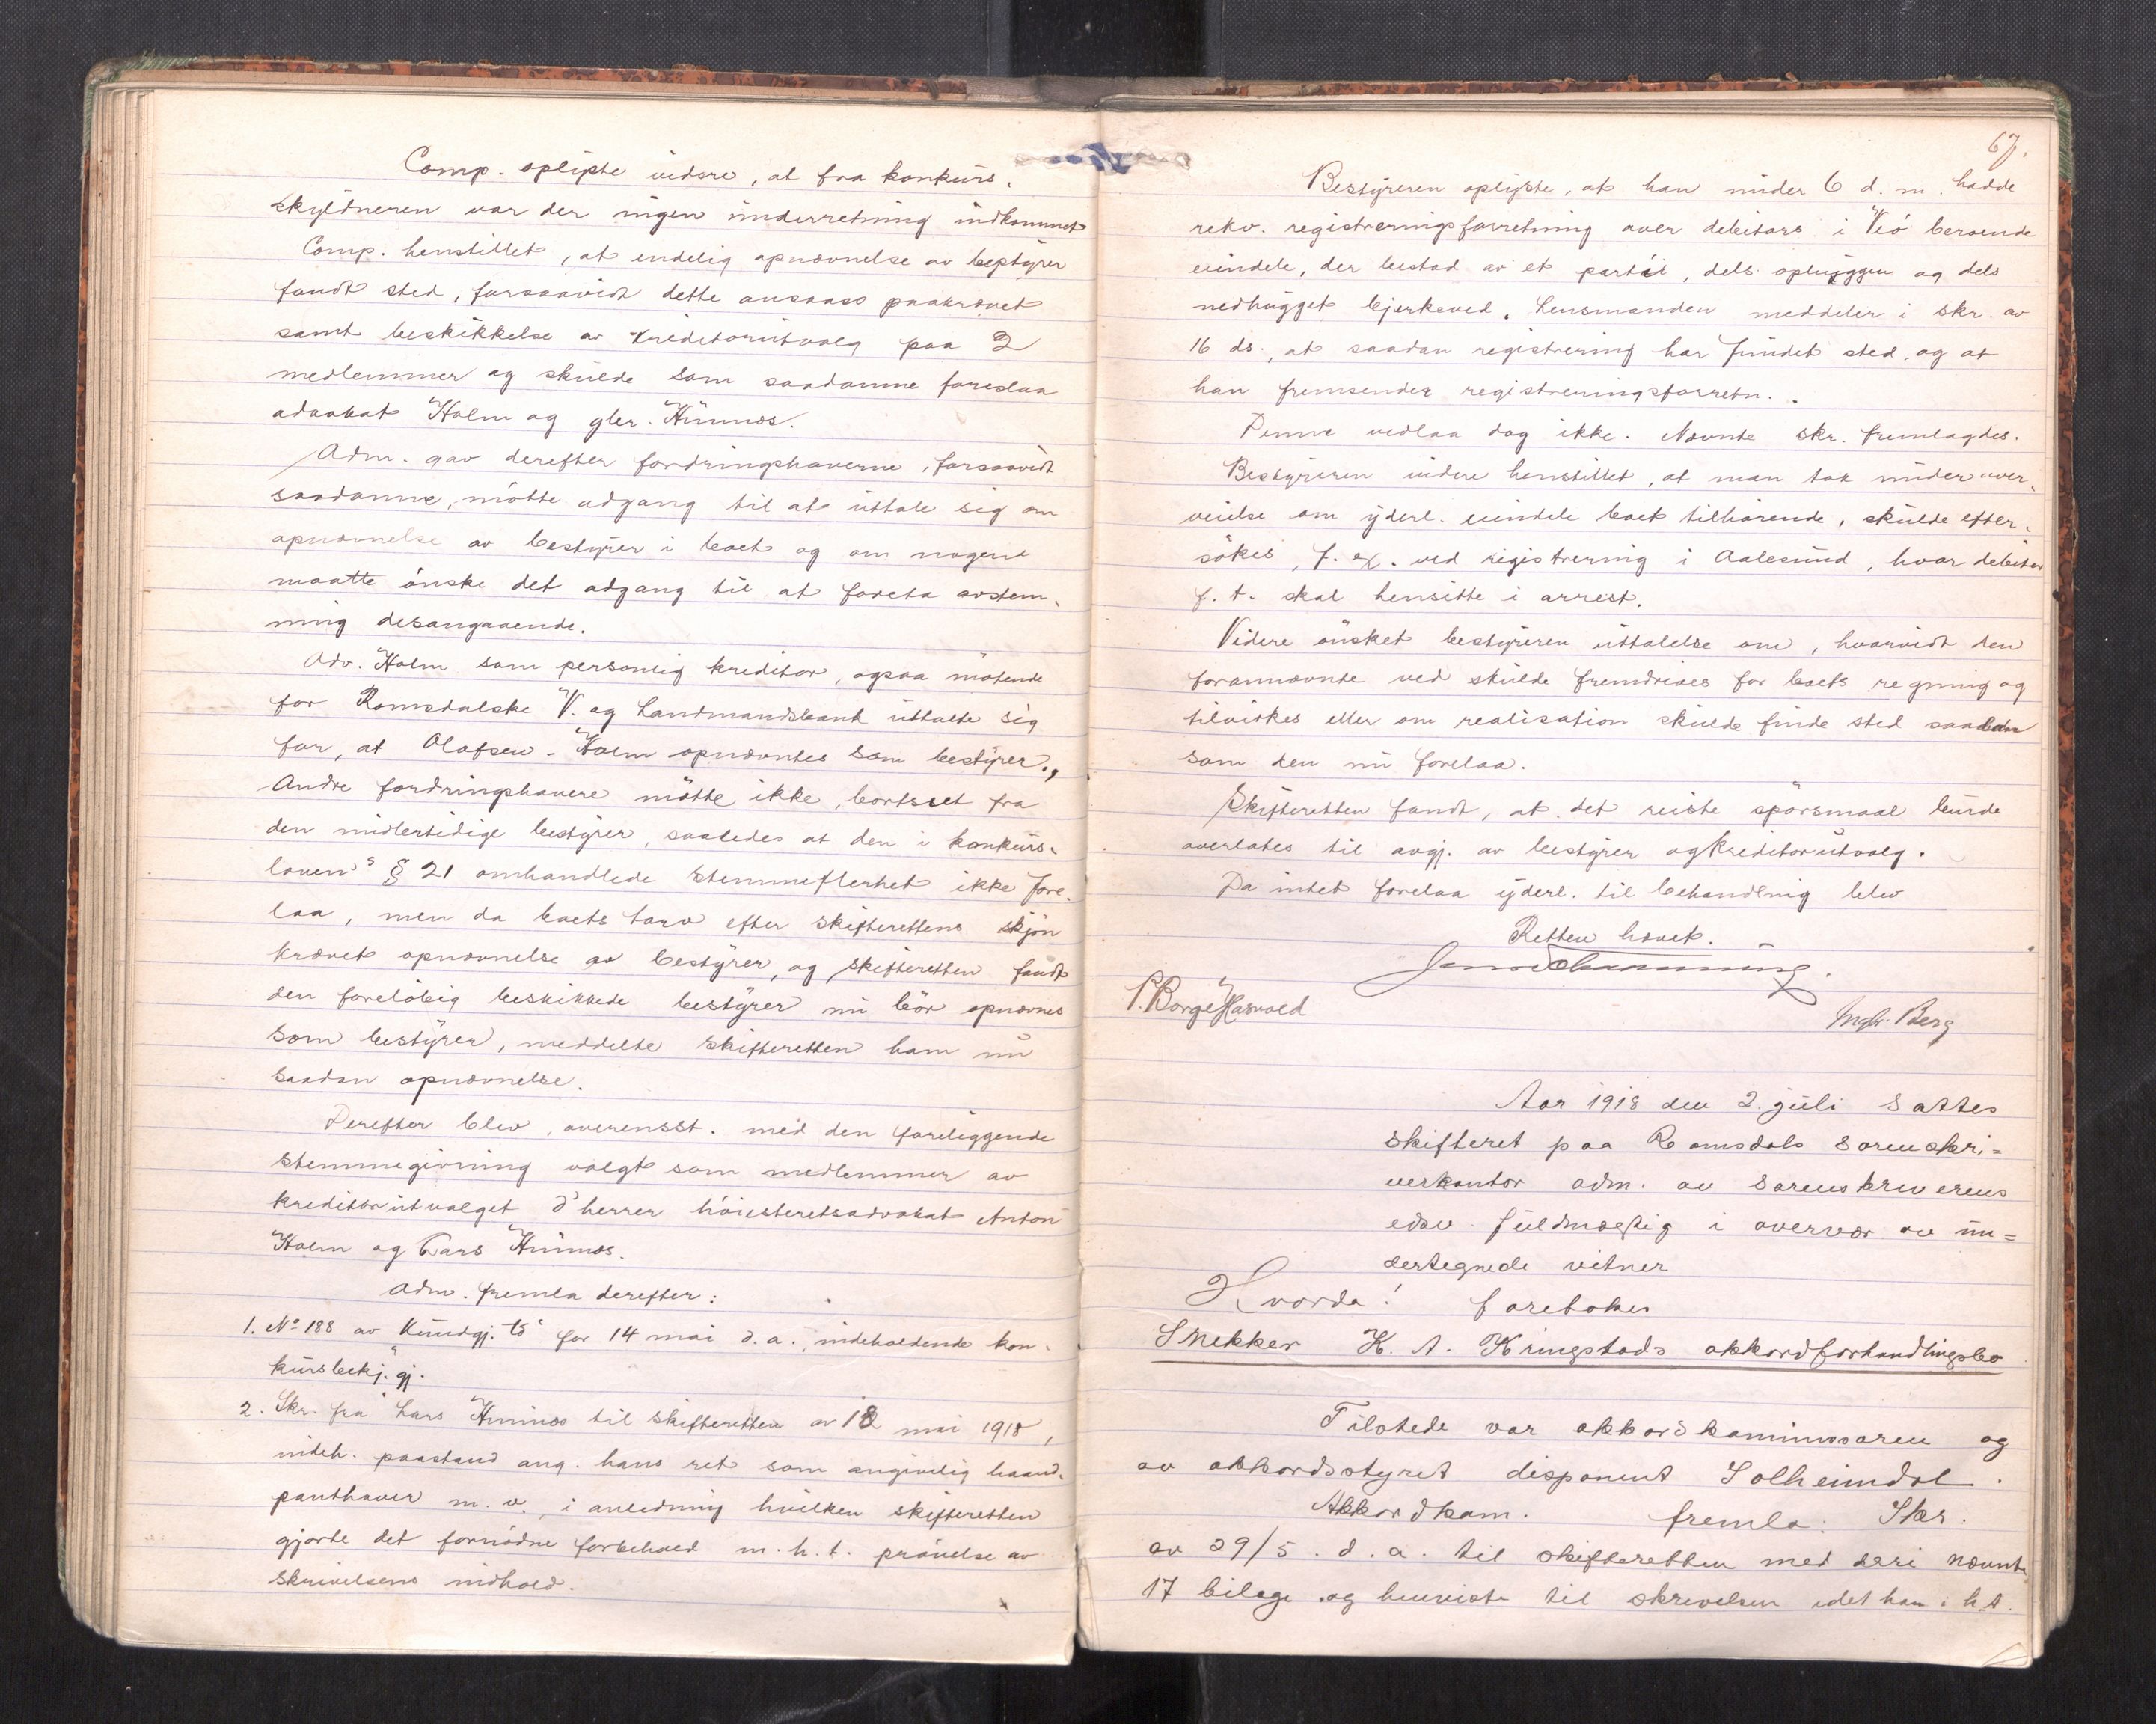 Comp. oplyste videre, at fra konkurs-
skyldneren var der ingen underretning indkommet
Comp. henstillet, at endelig opnævnelse av bestyrer
fandt sted, forsaavidt dette ansaaes paakrævet
samt beskikkelse av kreditorutvalg paa 2
medlemmer og skulde som saadanne foreslaa
advokat Holm og gbr. Hunnes.
Adm. gav derefter fordringshaverne, forsaavidt
saadanne, møtte adgang til at uttale sig om
opnævnelse av bestyrer i boet og om nogen
maatte ønske det adgang til at foreta avstem-
ning desangaaende.
Adv. Holm som personlig kreditor, ogsaa møtende
for Romsdalske V. og Landmandsbank uttalte sig
for, at Olafsen-Holm opnævntes som bestyrer.,
Andre fordringshavere møtte ikke, bortsset fra
den midlertidige bestyrer, saaledes at den i konkurs-
loven's § 21 omhandlede stemmeflerhet ikke fore-
laa, men da boets tarv efter skifterettens skjøn
krævet opnævnelse av bestyrer, og skifteretten fandt
den foreløbig beskikkede bestyrer nu bør opnævnes
som bestyrer, meddelte skifteretten ham nu
saadan opnævnelse.
Derefter blev, overensst. med den foreliggende
stemmegivning valgt som medlemmer av
kreditorutvalget d'herrer høiesteretsadvokat Anton
Holm og Lars Hunnes.
Adm. fremla derefter:
1. No 188 av Kundgj. td for 14 mai d.a., indeholdende kon-
kursbekj. gj.
2. Skr. fra Lars Hunnes til skifteretten av 18 mai 1918,
indeh. paastand ang. hans ret som angivelig haand-
panthaver m.v., i anledning hvilken skifteretten
gjorte det fornødne forbehold m.h.t. prøvelse av
skrivelsens indhold.
67.
Bestyreren oplyste, at han under 6 d.m. hadde
rekv. registreringsforretning over debitors i Veø beroende
eiendele, der bestod av et parti, dels ophuggen og dels
nedhugget bjerkeved. Lensmanden meddeler i skr. av
16 ds., at saadan registrering har fundet sted, og at
han fremsender registreringsforretn..
Denne vedlaa dog ikke. Nævnte skr. fremlagdes.
Bestyreren videre henstillet, at man tok under over-
veielse om yderl. eiendele boet tilhørende, skulde efter-
søkes, f. ex. ved registrering i Aalesund, hvor debitor
f. t. skal hensitte i arrest.
Videre ønsket bestyreren uttalelse om, hvorvidt den
forannævnte ved skulde fremdrives for boets regning og
tilvirkes eller om realisation skulde finde sted saadan
som den nu forelaa.
Skifteretten fandt, at det reiste spørsmaal burde
overlates til avgj. av bestyrer og kreditorutvalg.
Da intet forelaa yderl. til behandling blev
Retten hævet.
P. Borge Hasvold
Ingbr. Berg
Aar 1918 den 2. juli sattes
skifteret paa Romsdals sorenskri=
verkontor adm. av sorenskriverens
edsv. fuldmægtig i overvær av un=
dertegnede vitner
Hvorda! foretokes
Snekker K. A. Kringstads akkordforhandlingsbo
Tilstede var akkordkommissæren og
av akkordstyret disponent Solheimdal.
Akkordkom. fremla: Skr.
av 29/5. d. a. til skifteretten med deri nævnte
17 bilage og henviste til skrivelsen idet han i h.t.